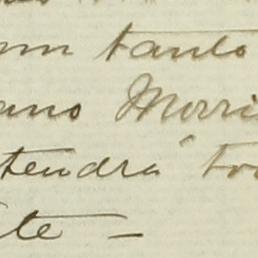 um tanto
ano Morri
tendrá to
te –